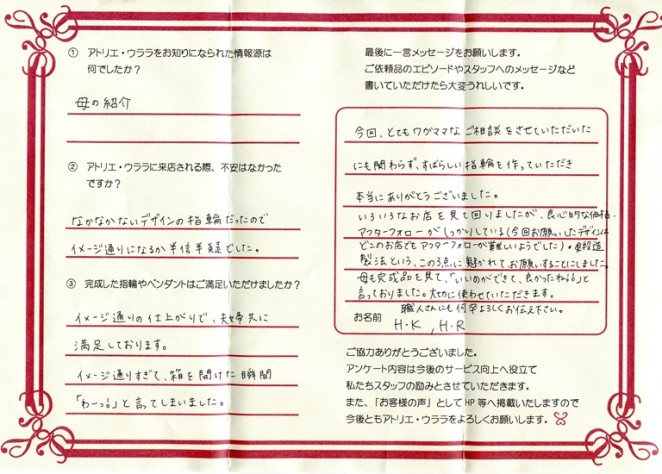 ① アトリエ・ウララをお知りになられた情報源は
何でしたか？
母の紹介
② アトリエ・ウララに来店される際、不安はなかった
ですか？
なかなかないデザインの指輪だったので
イメージ通りになるか半信半疑でした。
③ 完成した指輪やペンダントはご満足いただけましたか？
イメージ通りの仕上がりで、夫婦共に
満足しております。
イメージ通りすぎて、箱を開けた瞬間
「わーっ」と言ってしまいました。
最後に一言メッセージをお願いします。
ご依頼品のエピソードやスタッフへのメッセージなど
書いていただけたら大変うれしいです。
今回、とてもワガママなご相談をさせていただいた
にも関わらず、すばらしい指輪を作っていただき
本当にありがとうございました。
いろいろなお店を見て回りましたが、良心的な価格・
アフターフォローがしっかりしている(今回お願いしたデザインは
どこのお店でもアフターフォローが難しいようでした)。鍛造
製法という、この3点に魅かれてお願いすることにしました。
母も完成品を見て、「いいのができて、良かったね」と
言っておりました。大切に使わせていただきます。
職人さんにも何卒よろしくお伝え下さい。
お名前 H・K , H・R
ご協力ありがとうございました。
アンケート内容は今後のサービス向上へ役立て
私たちスタッフの励みとさせていただきます。
また、「お客様の声」としてHP等へ掲載いたしますので
今後ともアトリエ・ウララをよろしくお願いします。